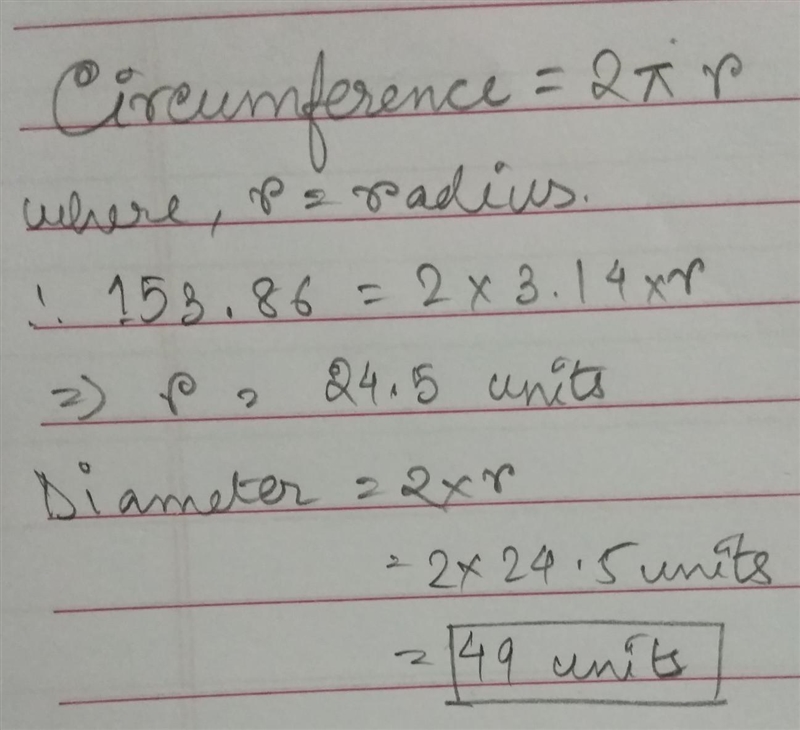 Circumference = 2π r
where, r = radius.
∴ 153.86 = 2 × 3.14 × r
=> r = 24.5 units
Diameter = 2 × r
= 2 × 24.5 units
= 49 units